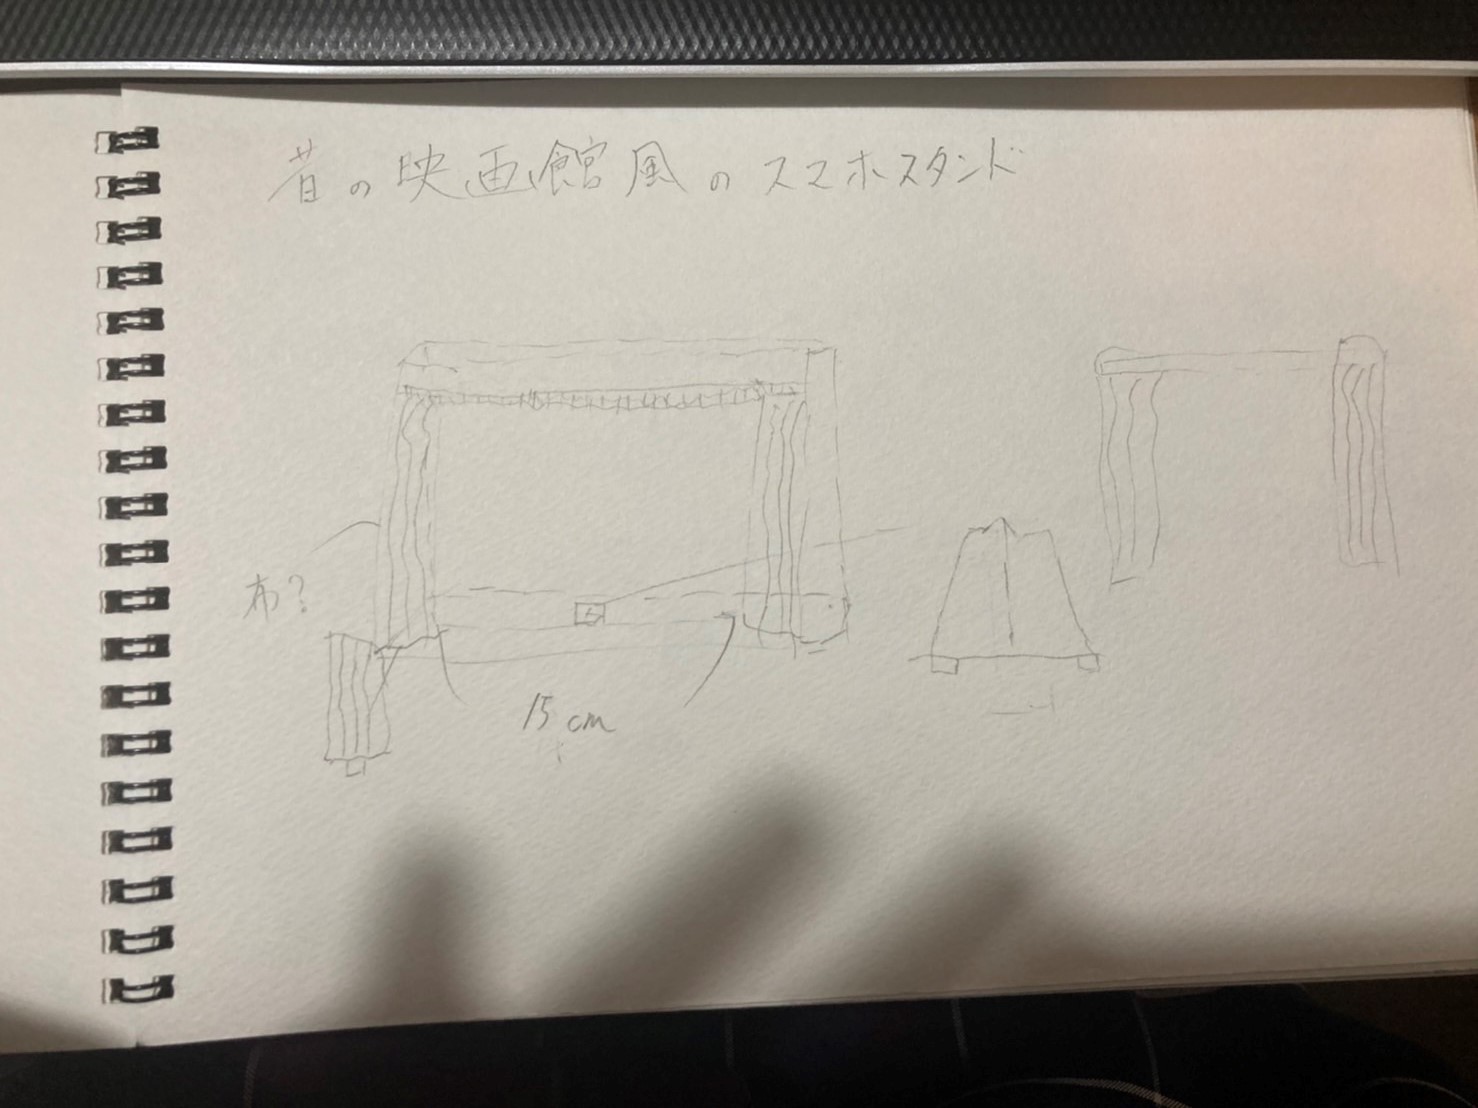 昔の映画館風のスマホスタンド
布?
15cm